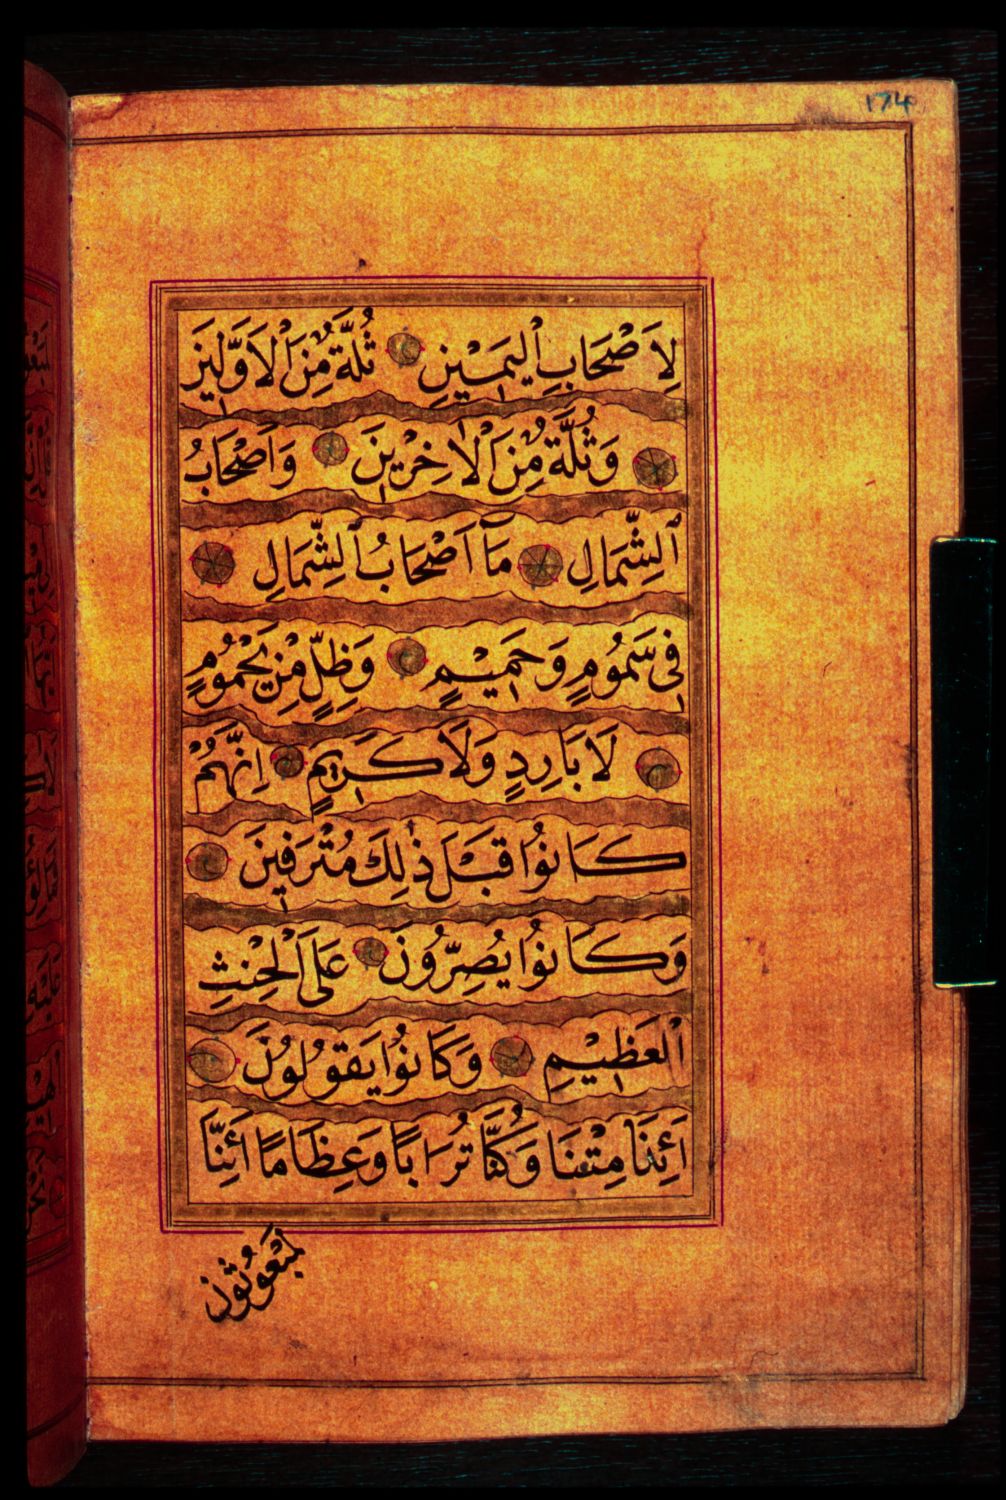 174
لِاَصْحَابِ الْيَمِيْنِ ثُلَّةٌ مِّنَ الْاَوَّلِيْنَ
وَثُلَّةٌ مِّنَ الْاٰخِرِيْنَ وَاَصْحَابُ
الشِّمَالِ مَآ اَصْحَابُ الشِّمَالِ
فِيْ سَمُوْمٍ وَحَمِيْمٍ وَظِلٍّ مِنْ يَحْمُوْمٍ
لَا بَارِدٍ وَلَا كَرِيْمٍ اِنَّهُمْ
كَانُوْا قَبْلَ ذٰلِكَ مُتْرَفِيْنَ
وَكَانُوْا يُصِرُّوْنَ عَلَى الْحِنْثِ
الْعَظِيْمِ وَكَانُوْا يَقُوْلُوْنَ
اَئِذَا مِتْنَا وَكُنَّا تُرَابًا وَعِظَامًا اَئِنَّا
لَمَبْعُوْثُوْنَ